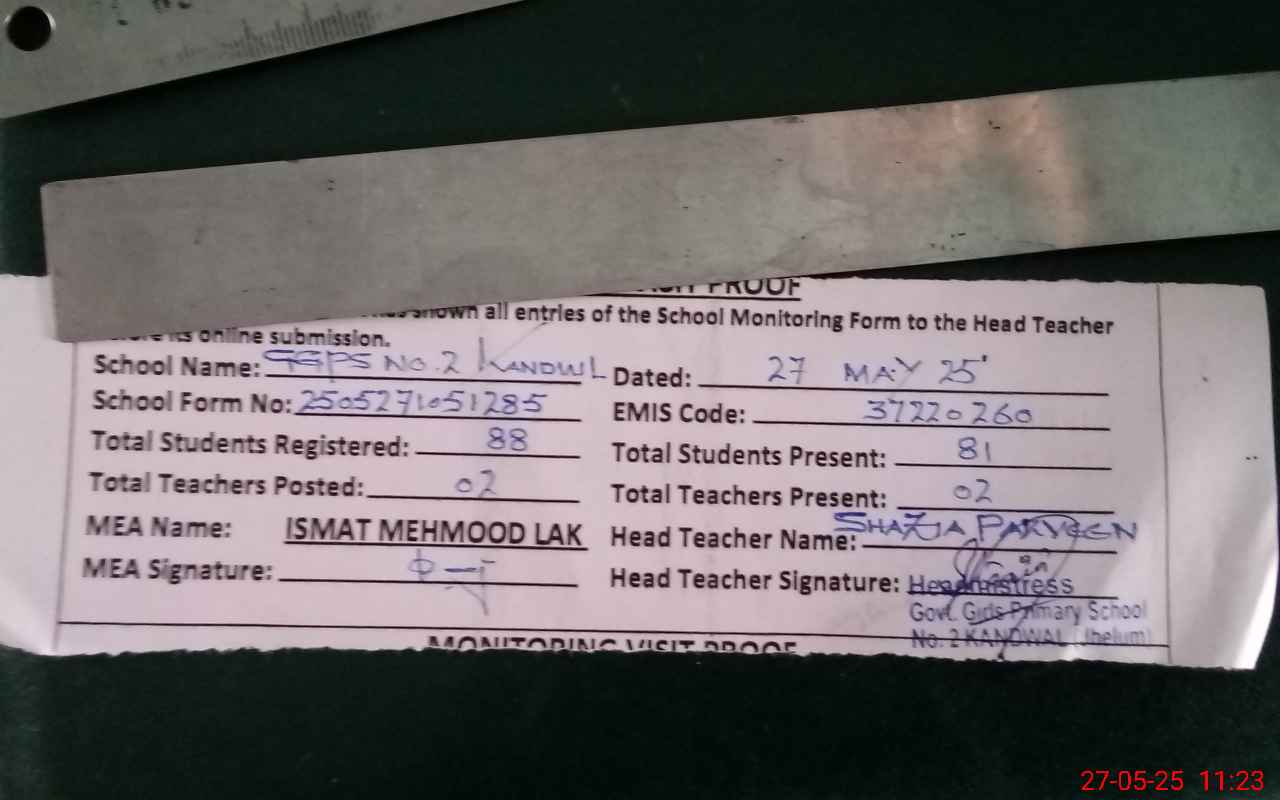 VISIT PROOF
shown all entries of the School Monitoring Form to the Head Teacher
its online submission.
School Name: GGPS NO.2 KANDWL Dated: 27 MAY 25'
School Form No: 2505271051285 EMIS Code: 37220260
Total Students Registered: 88 Total Students Present: 81
Total Teachers Posted: 02 Total Teachers Present: 02
MEA Name: ISMAT MEHMOOD LAK Head Teacher Name: SHAZIA PARVEEN
MEA Signature: Head Teacher Signature: Headmistress
Govt. Girls Primary School
No. 2 KANDWAL (Jhelum)
MONITORING VISIT PROOF
27-05-25 11:23